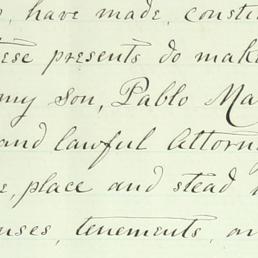 , have made, constit
ese presents do mak
my Son, Pablo Ma
and lawful Attorn
e, place and stead
uses, tenements, or